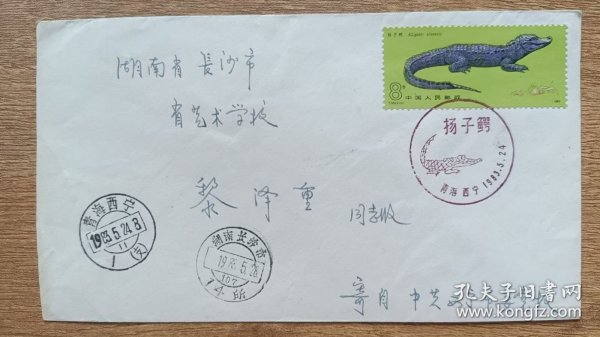 湖南省长沙市
省艺术学校
黎泽重 同志收
扬子鳄 Alligator sinensis
8分 中国人民邮政
扬子鳄
青海西宁 1983.5.24
青海西宁
1983.5.24.8
11
1(支)
湖南长沙市
1983.5.28
107
14所
寄自 中共
孔夫子旧书网
www.kongfz.com